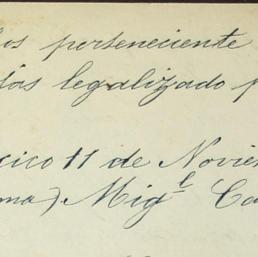 os perteneciente
das legalizado p
xico 11 de Novie
ma). Mig^l Ca